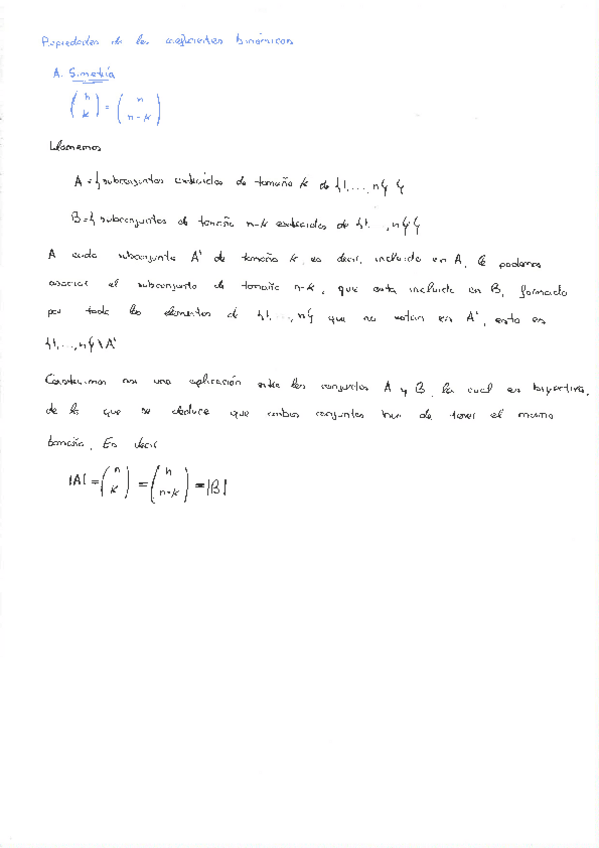 Propiedades de los coeficientes binómicos
A. Simetría
(n k) = (n n-k)
Llamemos
A = { subconjuntos extraidos de tamaño k de {1, ..., n} }
B = { subconjuntos de tamaño n-k extraidos de {1, ..., n} }
A cada subconjunto A' de tamaño k, es decir, incluido en A, le podemos
asociar el subconjunto de tamaño n-k, que esta incluido en B, formado
por todos los elementos de {1, ..., n} que no estan en A', esto es
{1, ..., n} \ A'
Construimos asi una aplicación entre los conjuntos A y B, la cual es biyectiva,
de lo que se deduce que ambos conjuntos han de tener el mismo
tamaño. Es decir
|A| = (n k) = (n n-k) = |B|